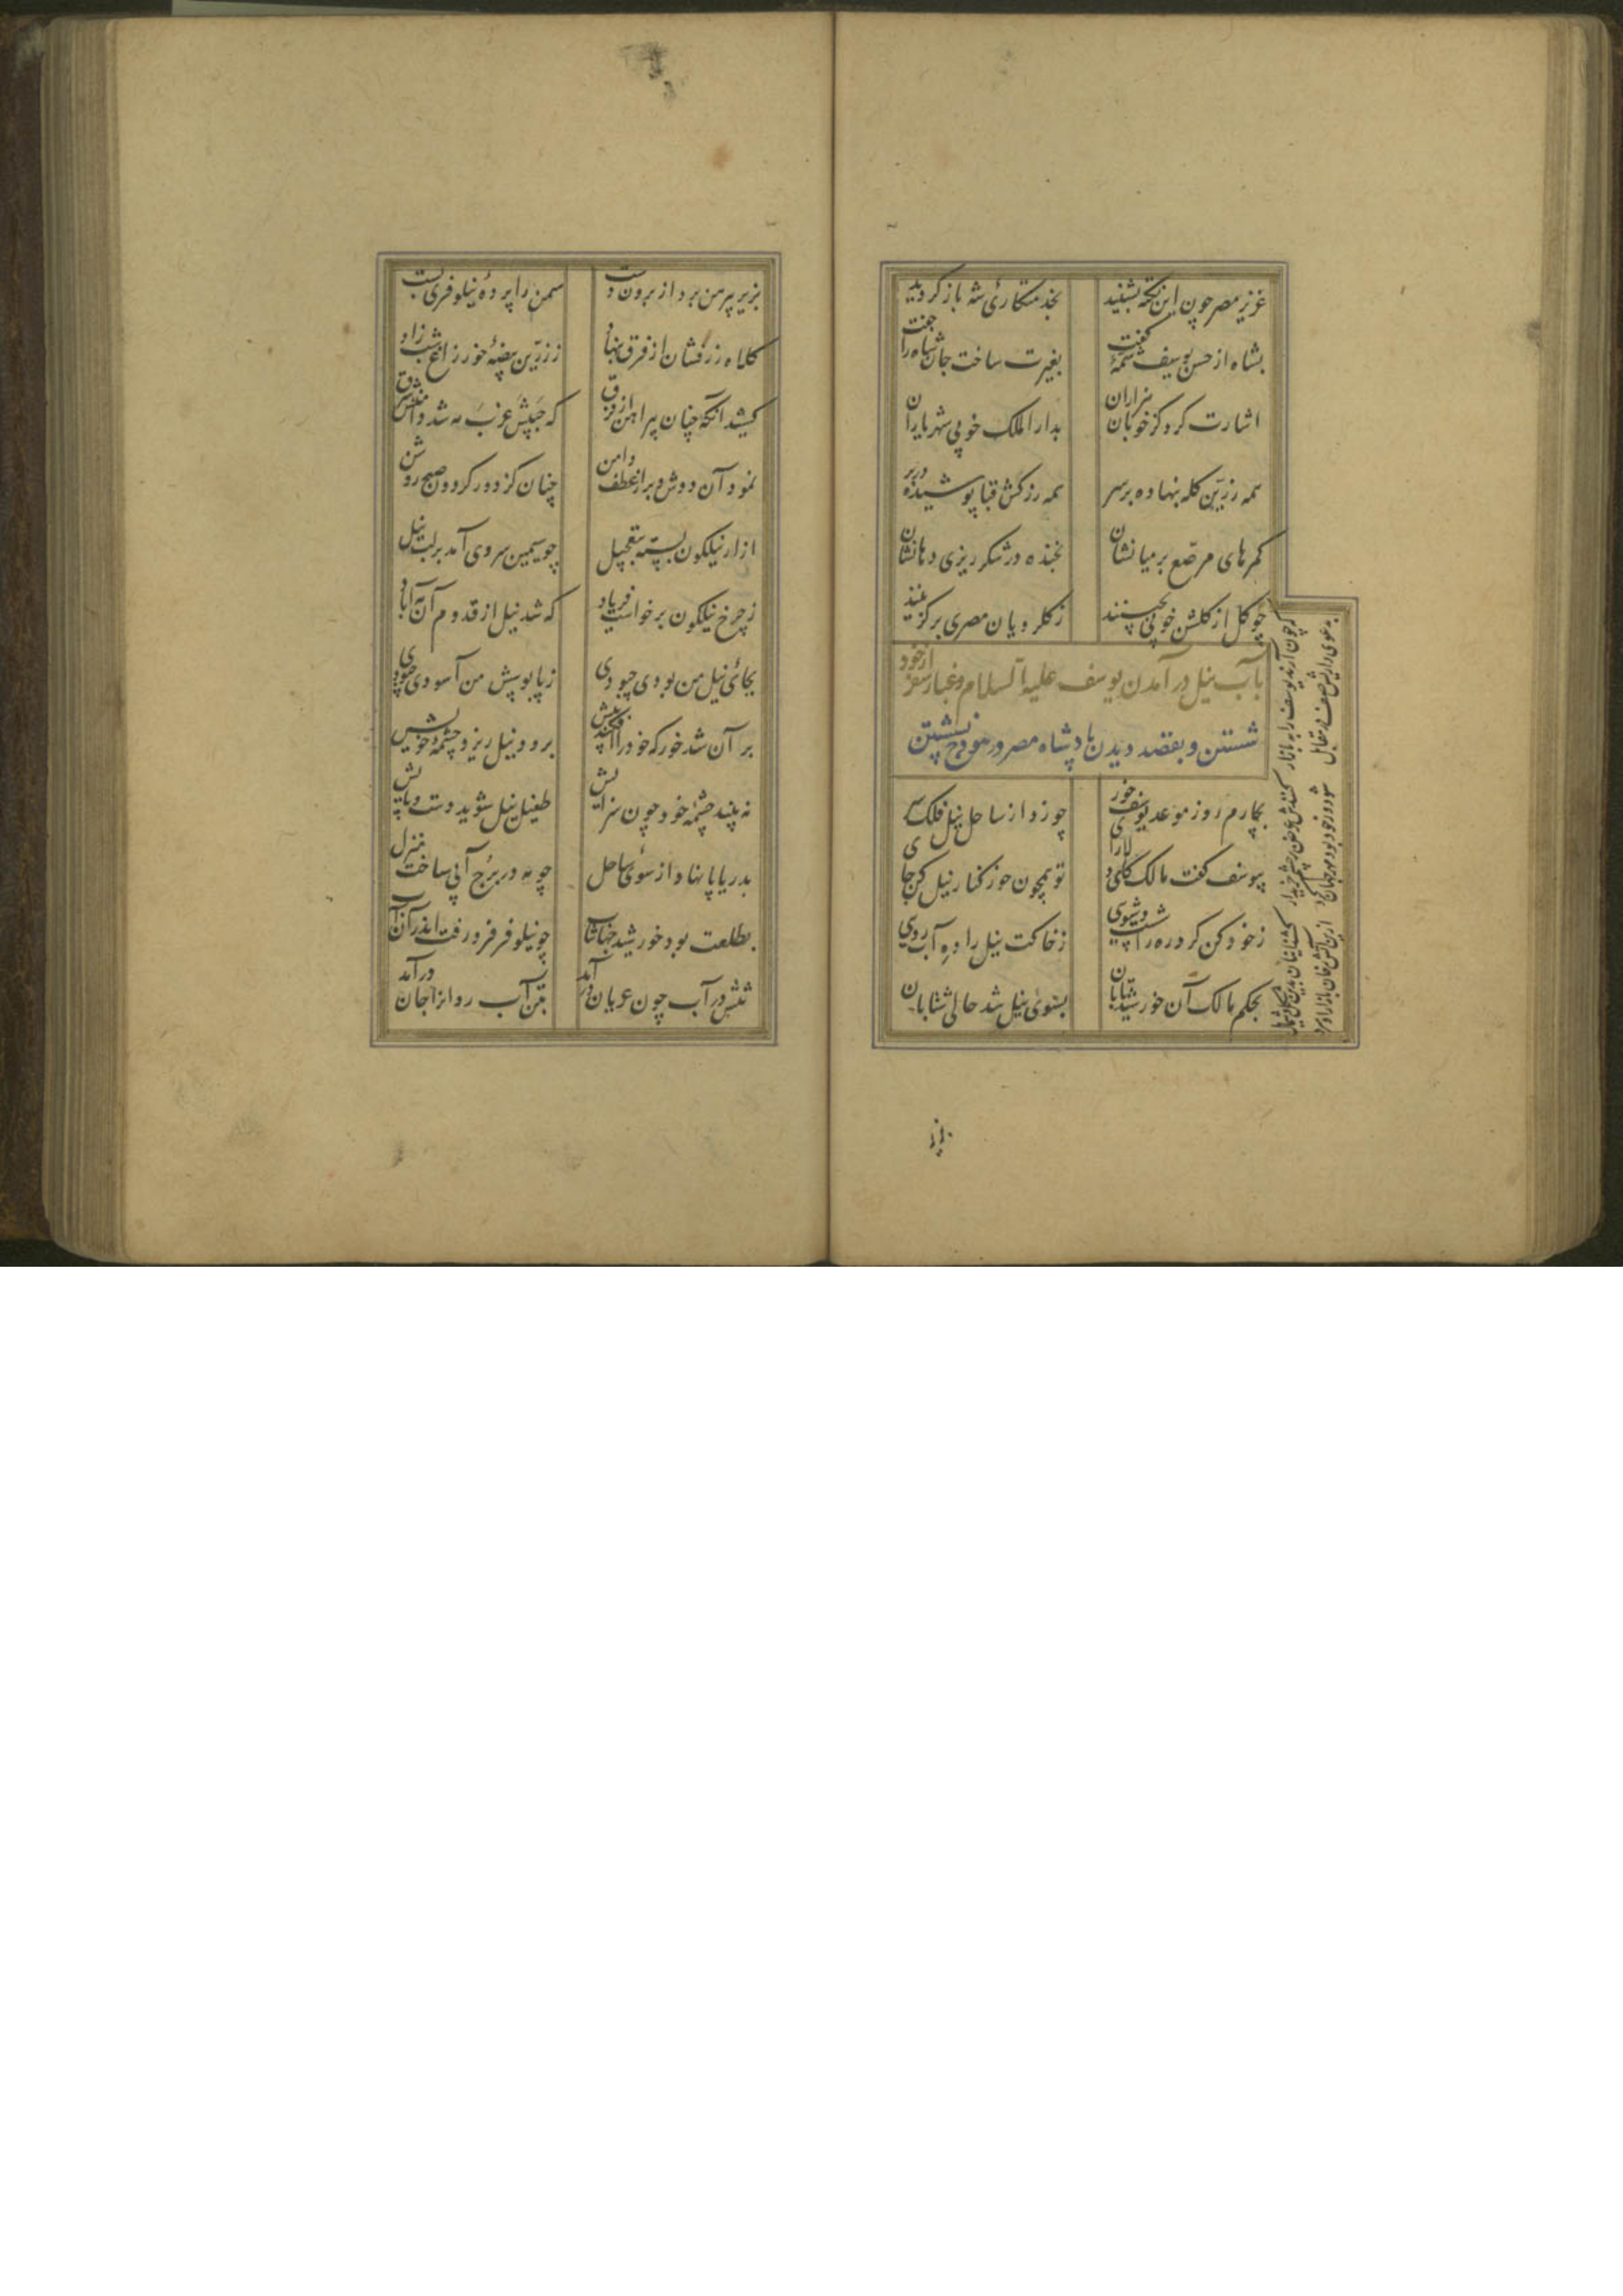 عزیز مصر چون این نکته بشنید بخدمتکاری شه باز گردید
بشاه از حسن یوسف شمهٔ گفت بغیرت ساخت جان شاه را جفت
اشارت کرد کز خوبان هزاران بدار الملک خوبی شهریاران
همه زرین کله بنهاده بر سر همه زرکش قبا پوشیده در بر
کمرهای مرصع بر میانشان بخنده در شکر ریزی دهانشان
چو گل از گلشن خوبی بچینند ز گلرویان مصری بر گزینند
که چون آرند یوسف را به بازار کنندش عرض بر چشم خریدار
کشند اینان بدین شکل و شمایل
به دعوی داریش صف در مقابل
شود گر خود بود مهر جهان گرد ازین آتش رخان بازار او سرد
بآب نیل در آمدن یوسف علیه السلام و غبار سفر از خود
شستن و بقصد دیدن پادشاه مصر در هودج نشستن
بچارم روز موعد یوسف خور چو زد از ساحل نیل فلک سر
بیوسف گفت مالک کای دلارا تو همچون خور کنار نیل کن جا
ز خود کن گرد ره را شست و شوی ز خاکت نیل را ده آب روی
بحکم مالک آن خورشید تابان بسوی نیل شد حالی شتابان
بزیر پیرهن برد از برون دست سمن را پردهٔ نیلوفری بست
کلاه زرفشان از فرق بنهاد ز زرین بیضهٔ خور زاغ شب زاد
کشید آنگه چنان پیراهن از فرق که جیبش غرب مه شد دامنش شرق
نمود آن دوش و بر از عطف دامن چنان کز دور گردون صبح روشن
ازار نیلگون بسته بتعجیل چو سیمین سروی آمد بر لب نیل
ز چرخ نیلگون برخواست فریاد که شد نیل از قدوم آن مه آباد
بجای نیل من بودی چه بودی ز پابوسش من آسودی چه بودی
بر آن شد خور که خود را افکند پیش برود نیل ریزد چشمهٔ خویش
نه بیند چشمهٔ خود چون سزایش طفیل نیل شوید دست و پایش
بدریا پا نهاد از سوی ساحل چو مه در برج آبی ساخت منزل
بطلعت بود خورشید جهانتاب چو نیلوفر فرو رفت اندر آن آب
تنش در آب چون عریان در آمد بتن آب روان را جان در آمد